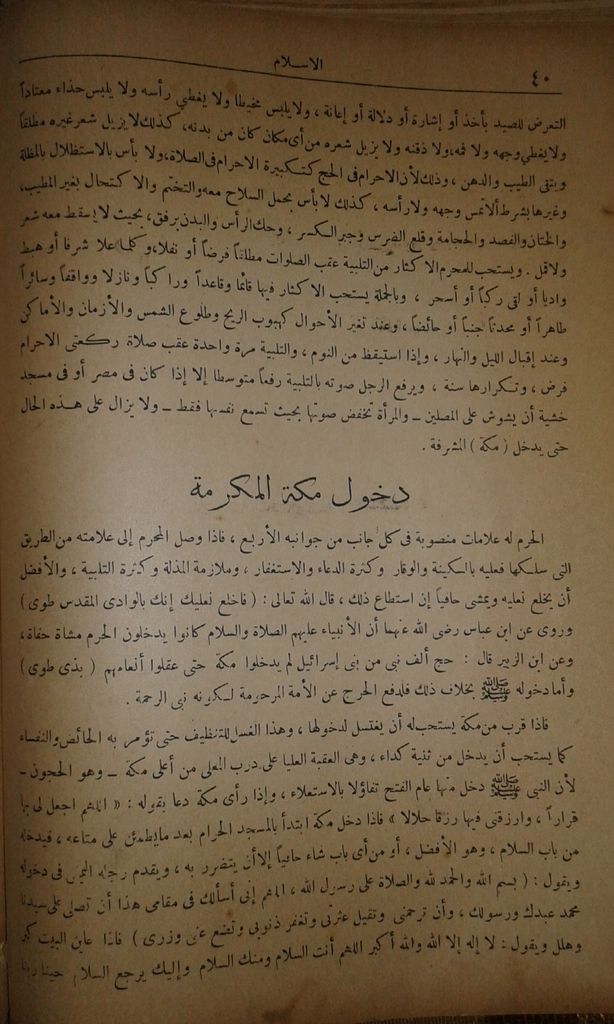 الاسلام
٤٠
التعرض للصيد بأخذ أو إشارة أو دلالة أو إعانة ، ولا يلبس مخيطا ولا يغطي رأسه ولا يلبس حذاء معتاداً
ولا يغطي وجهه ولا فمه ، ولا ذقنه ولا يزيل شعره من أى مكان كان من بدنه ، كذلك لا يزيل شعر غيره مطلقاً
ويتقى الطيب والدهن ، وذلك لأن الاحرام فى الحج كتكبيرة الاحرام فى الصلاة ، ولا بأس بالاستظلال بالمظلة
وغيرها بشرط ألا تمس وجهه ولا رأسه ، كذلك لا بأس بحمل السلاح معه والتختم والاكتحال بغير المطيب ،
والختان والفصد والحجامة وقلع الضرس وجبر الكسر ، وحك الرأس والبدن برفق ، بحيث لا يسقط معه شعر
ولا قمل . ويستحب للمحرم الاكثار من التلبية عقب الصلوات مطلقاً فرضاً أو نفلا ، وكلما علا شرفا أو هبط
واديا أو لقى ركباً أو أسحر ، وبالجملة يستحب الاكثار فيها قائما وقاعداً وراكباً ونازلا وواقفاً وسائراً
طاهراً أو محدثاً جنباً أو حائضاً ، وعند تغير الأحوال كهبوب الريح وطلوع الشمس والأزمان والأماكن
وعند إقبال الليل والنهار ، وإذا استيقظ من النوم ، والتلبية مرة واحدة عقب صلاة ركعتى الاحرام
فرض ، وتكرارها سنة ، ويرفع الرجل صوته بالتلبية رفعاً متوسطا إلا إذا كان فى مصر أو فى مسجد
خشية أن يشوش على المصلين ــ والمرأة تخفض صوتها بحيث تسمع نفسها فقط ــ ولا يزال على هذه الحال
حتى يدخل ( مكة ) المشرفة .
دخول مكة المكرمة
الحرم له علامات منصوبة فى كل جانب من جوانبه الأربع ، فاذا وصل المحرم إلى علامته من الطريق
التى سلكها فعليه بالسكينة والوقار وكثرة الدعاء والاستغفار ، وملازمة المذلة وكثرة التلبية ، والأفضل
أن يخلع نعليه ويمشى حافياً إن استطاع ذلك ، قال الله تعالى : ( فاخلع نعليك إنك بالوادى المقدس طوى )
وروى عن ابن عباس رضى الله عنهما أن الأنبياء عليهم الصلاة والسلام كانوا يدخلون الحرم مشاة حفاة ،
وعن ابن الزبير قال : حج ألف نبى من بنى إسرائيل لم يدخلوا مكة حتى عقلوا أنعامهم ( بذى طوى )
وأما دخوله ﷺ بخلاف ذلك فلدفع الحرج عن الأمة المرحومة لكونه نبى الرحمة .
فاذا قرب من مكة يستحب له أن يغتسل لدخولها ، وهذا الغسل للتنظيف حتى تؤمر به الحائض والنفساء
كما يستحب أن يدخل من ثنية كداء ، وهى العقبة العليا على درب المعلى من أعلى مكة ــ وهو الحجون ــ
لأن النبى ﷺ دخل منها عام الفتح تفاؤلا بالاستعلاء ، وإذا رأى مكة دعا بقوله : « اللهم اجعل لى بها
قراراً ، وارزقنى فيها رزقا حلالا » فاذا دخل مكة ابتدأ بالمسجد الحرام بعد ما يطمئن على متاعه ، فيدخله
من باب السلام ، وهو الأفضل ، أو من أى باب شاء حافياً إلا أن يتضرر به ، ويقدم رجله اليمنى فى دخوله
ويقول : ( بسم الله والحمد لله والصلاة على رسول الله ، اللهم إنى أسألك فى مقامى هذا أن تصلى على سيدنا
محمد عبدك ورسولك ، وأن ترحمنى وتقيل عثرتى وتغفر ذنوبى وتضع عنى وزرى ) فاذا عاين البيت كبر
وهلل ويقول : لا إله إلا الله والله أكبر اللهم أنت السلام ومنك السلام وإليك يرجع السلام حينا ربنا